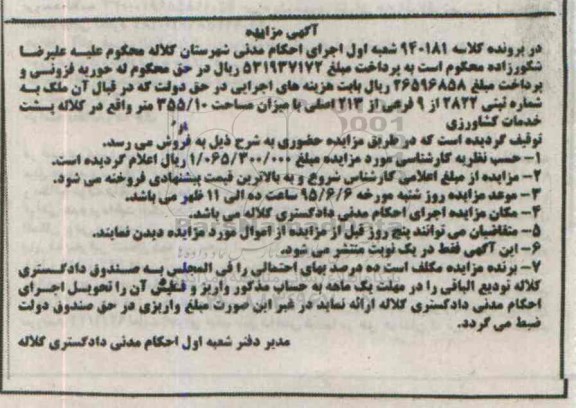 آگهی مزایده
در پرونده کلاسه ۹۴۰۱۸۱ شعبه اول اجرای احکام مدنی شهرستان کلاله محکوم علیه علیرضا
شکورزاده محکوم است به پرداخت مبلغ ۵۳۱۹۳۷۱۷۲ ریال در حق محکوم له حوریه فزونسی و
پرداخت مبلغ ۲۶۵۹۶۸۵۸ ریال بابت هزینه های اجرایی در حق دولت که در قبال آن ملک به
شماره ثبتی ۲۸۲۲ از ۹ فرعی از ۲۱۳ اصلی با میزان مساحت ۳۵۵/۱۰ متر واقع در کلاله پشت
خدمات کشاورزی
توقیف گردیده است که در طریق مزایده حضوری به شرح ذیل به فروش می رسد.
۱- حسب نظریه کارشناسی مورد مزایده مبلغ ۱/۰۶۵/۳۰۰/۰۰۰ ریال اعلام گردیده است.
۲- مزایده از مبلغ اعلامی کارشناس شروع و به بالاترین قیمت پیشنهادی فروخته می شود.
۳- موعد مزایده روز شنبه مورخه ۹۵/۶/۶ ساعت ده الی ۱۱ ظهر می باشد.
۴- مکان مزایده اجرای احکام مدنی دادگستری کلاله می باشد.
۵- متقاضیان می توانند پنج روز قبل از مزایده از اموال مورد مزایده دیدن نمایند.
۶- این آگهی فقط در یک نوبت منتشر می شود.
۷- برنده مزایده مکلف است ده درصد بهای احتمالی را فی المجلس به صندوق دادگستری
کلاله تودیع الباقی را در مهلت یک ماهه به حساب مذکور واریز و فیش آن را تحویل اجرای
احکام مدنی دادگستری کلاله ارائه نماید در غیر این صورت مبلغ واریزی در حق صندوق دولت
ضبط می گردد.
مدیر دفتر شعبه اول احکام مدنی دادگستری کلاله